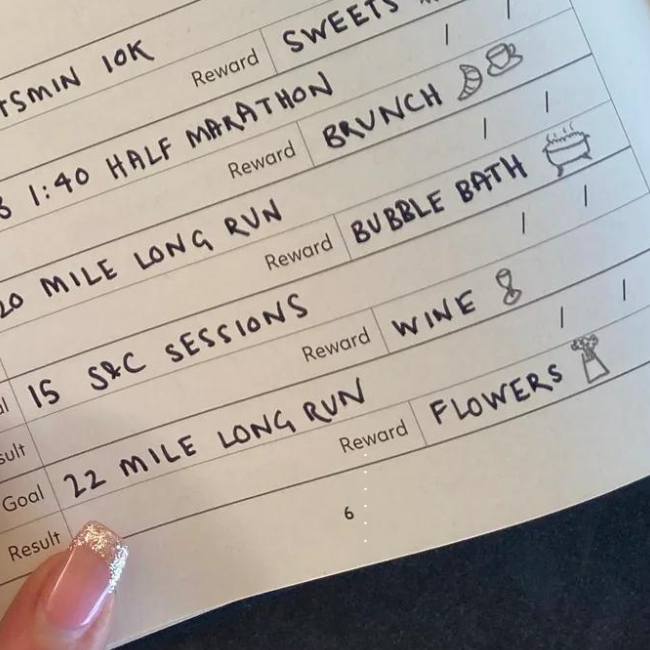 10K
Reward SWEETS
1:40 HALF MARATHON
Reward BRUNCH
20 MILE LONG RUN
Reward BUBBLE BATH
15 S&C SESSIONS
Reward WINE
Goal 22 MILE LONG RUN
Result Reward FLOWERS
6